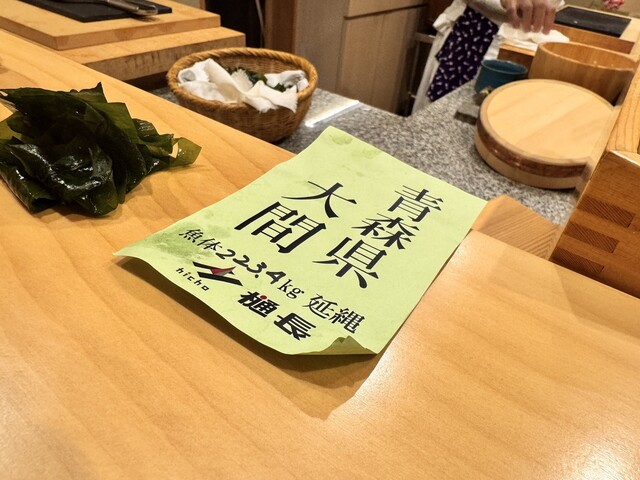 青森県
大間
魚体223.4kg 延縄
hicho 樋長